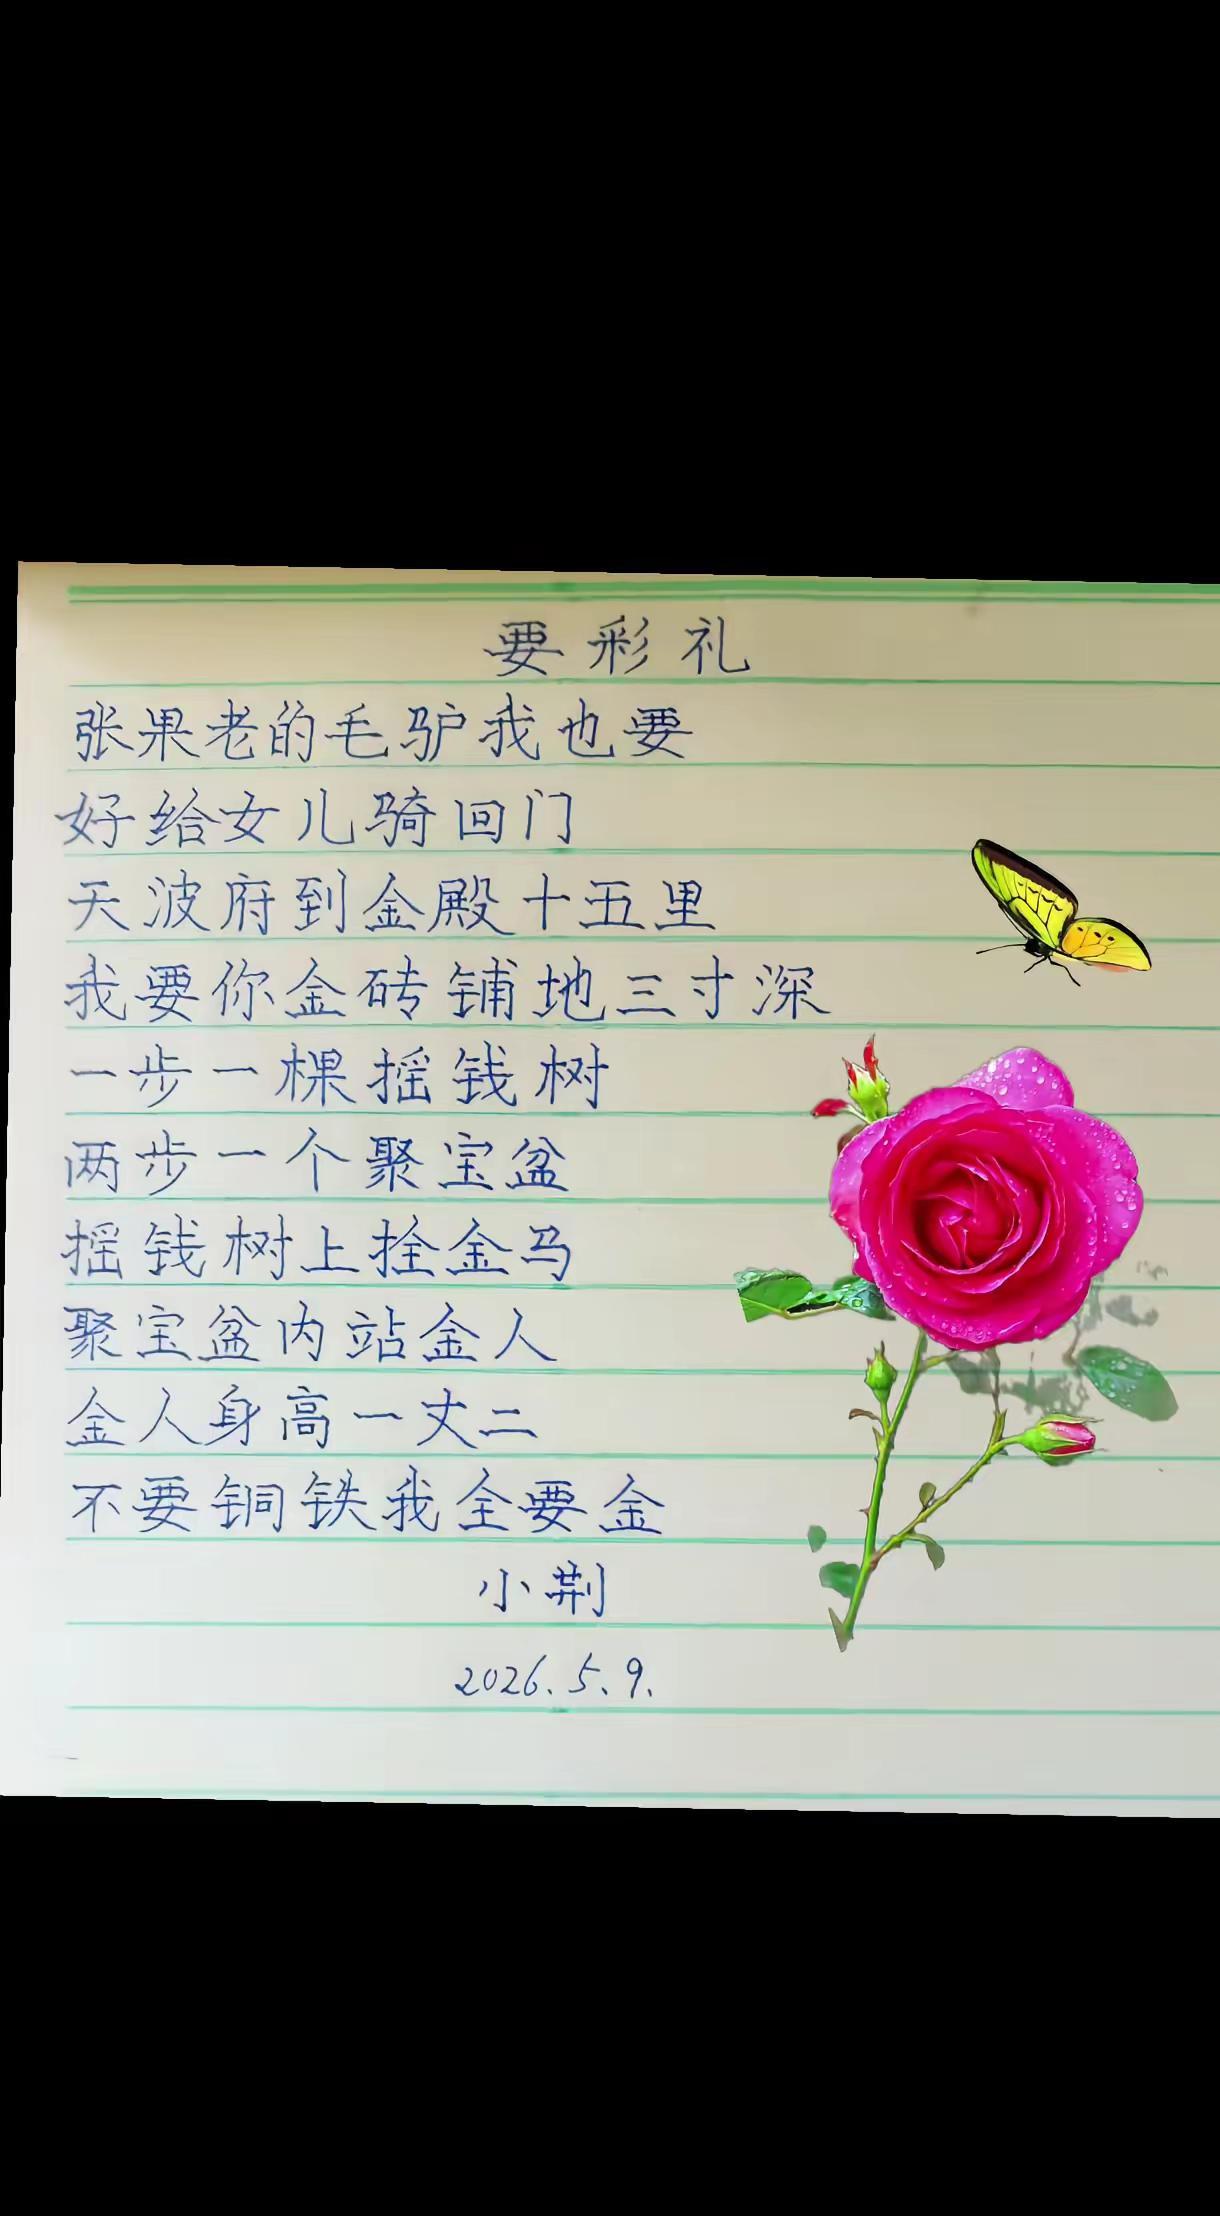 要彩礼
张果老的毛驴我也要
好给女儿骑回门
天波府到金殿十五里
我要你金砖铺地三寸深
一步一棵摇钱树
两步一个聚宝盆
摇钱树上拴金马
聚宝盆内站金人
金人身高一丈二
不要铜铁我全要金
小荆
2026.5.9.